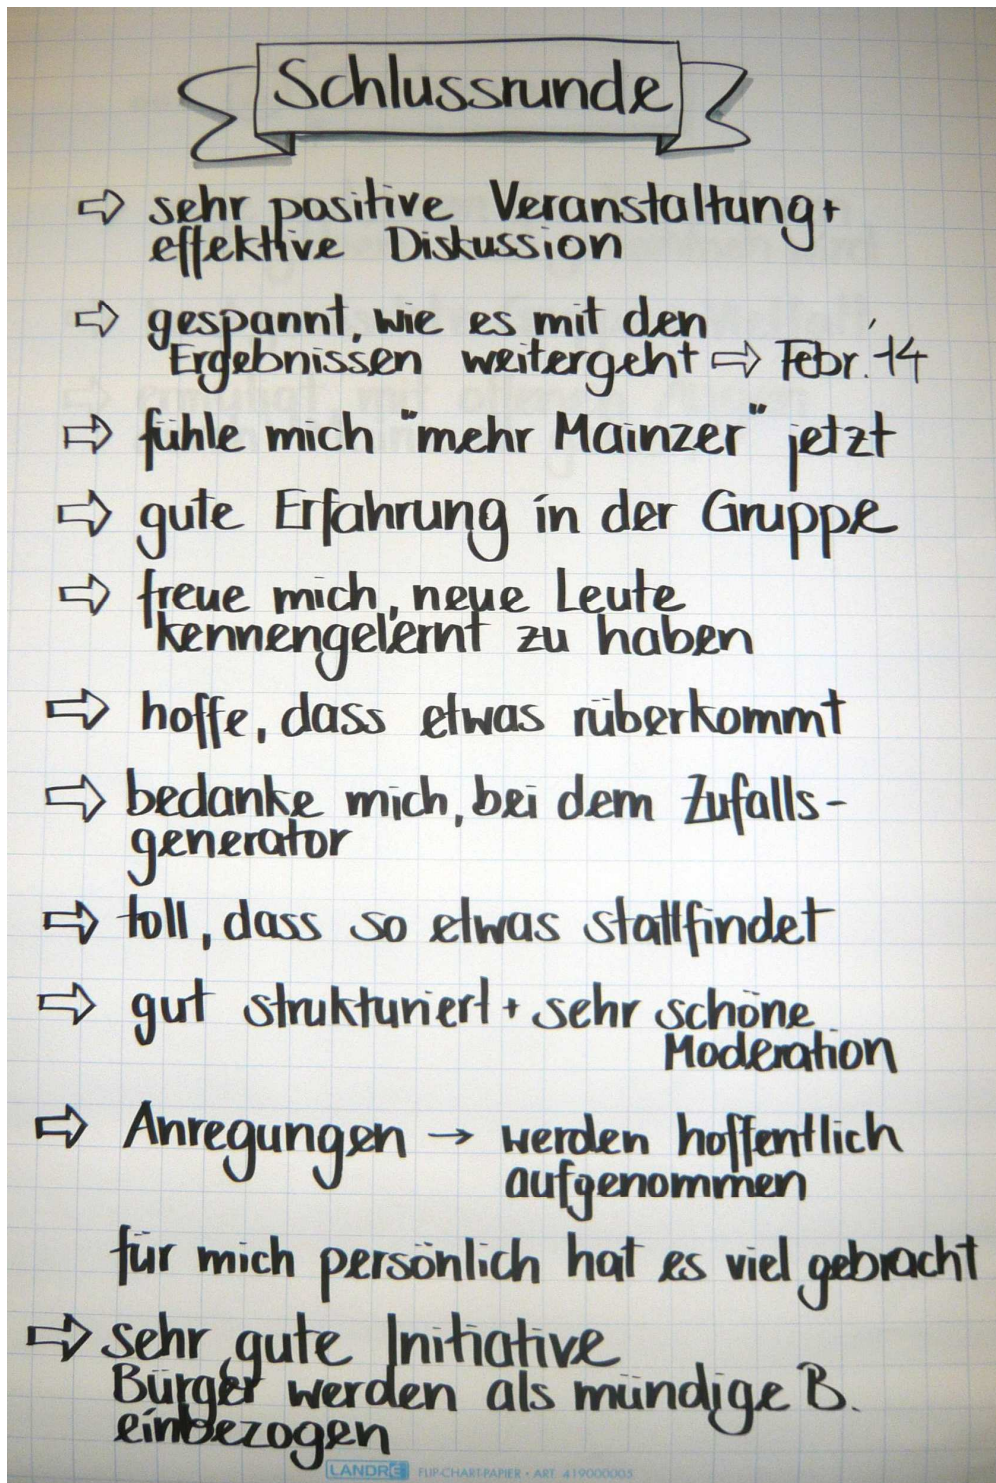 Schlussrunde
⇨ sehr positive Veranstaltung +
effektive Diskussion
⇨ gespannt, wie es mit den
Ergebnissen weitergeht ⇨ Febr. '14
⇨ fühle mich "mehr Mainzer" jetzt
⇨ gute Erfahrung in der Gruppe
⇨ freue mich, neue Leute
kennengelernt zu haben
⇨ hoffe, dass etwas rüberkommt
⇨ bedanke mich, bei dem Zufalls-
generator
⇨ toll, dass so etwas stattfindet
⇨ gut strukturiert + sehr schöne
Moderation
⇨ Anregungen → werden hoffentlich
aufgenommen
für mich persönlich hat es viel gebracht
⇨ sehr gute Initiative
Bürger werden als mündige B.
einbezogen
LANDRÉ FLIP-CHART-PAPIER • ART. 419000005